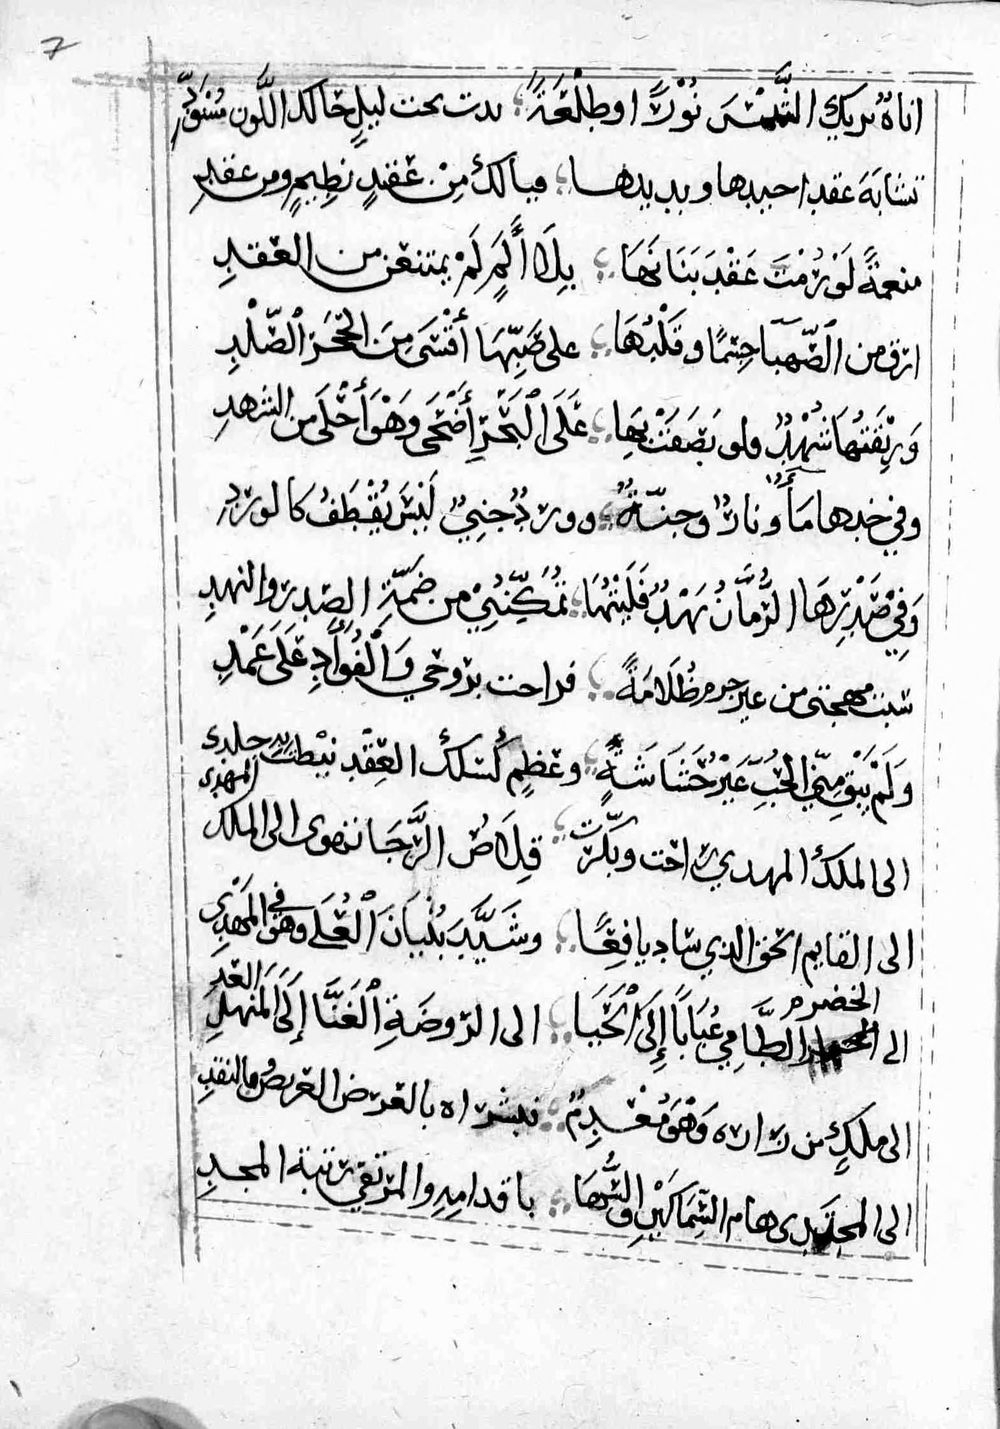 7
اناةٌ تريك الشَّمْسَ نُوْرًا وطلْعَةً ؛ بدت تحت ليلٍ حالك اللّون مُسْوَدِّ
تشابَهَ عقدا جيدها وبديدها ؛ فيالكَ مِنْ عِقدٍ نظِيمٍ ومن عقدِ
منعمةً لَوْ رُمْتَ عَقْدَ بَنَانَهَا ؛ بِلَا أَلَمٍ لَمْ يمتنعن من العقدِ
ارق من الصَّهبَا جِسْمًا وقَلْبُهَا ؛ على صَبِّهَا أقْسَى مِنَ الحَجَرِ الصَّلْدِ
وَرِيْقَتُهَا شُهْدٌ ولو بَصَقَتْ بِهَا ؛ عَلَى الْبَحْرِ أَضْحَى وَهْوَ أَحْلَى من الشهدِ
وفي خدها مَاءٌ ونارٌ وجنّةٌ ؛ وورْدٌ جنِيٌ لَيْسَ يُقْطَفُ كالوردِ
وَفِيْ صَدْرِهَا الرُّمَّانُ نهْدٌ فَلَيْتَهَا ؛ تُمَكِّنُنِيْ من ضَمَّةِ الصّدرِ والنهدِ
سَبَت مهجتي من غير جرم ظُلَامَةً ؛ فراحت بروحي وَالْفُوَأدِ عَلَى عَمْدِ
وَلَمْ يَبْقَ مِنِّي الحُبُّ غَيْرَ حُشَاشَةٍ ؛ وعَظمٍ كسلك العِقْدِ نيْطت به جلدى
الى الملك المهدي راحت وبكّرت ؛ قِلَاصُ الرَّجَا تهوى الى الملك المهدى
الى القايم الحق الذي ساد يافِعًا ؛ وشَيَّدَ بُنْيَانَ الْعُلَى وهوَ في المَهْدِ
الى الخضرم الطَّامِي عُبَابًا إِلَى الْحَيَا ؛ الى الرَّوضَةِ الْغَنَّا إِلَى المَنْهلِ العد
الى ملكٍ من زاره وَهْوَ مُعْدِمٌ ؛ بشراه بالعَرَض العريضِ وبالنقدِ
الى المحتدى هام السِّمَاكَيْنِ والسُّهَا ؛ باقدامِهِ والمرتقي رتبة المجدِ